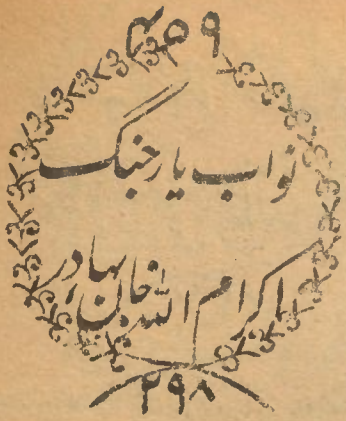 نواب یار جنگ
اکرام اللہ خان بہادر
۲۹۸